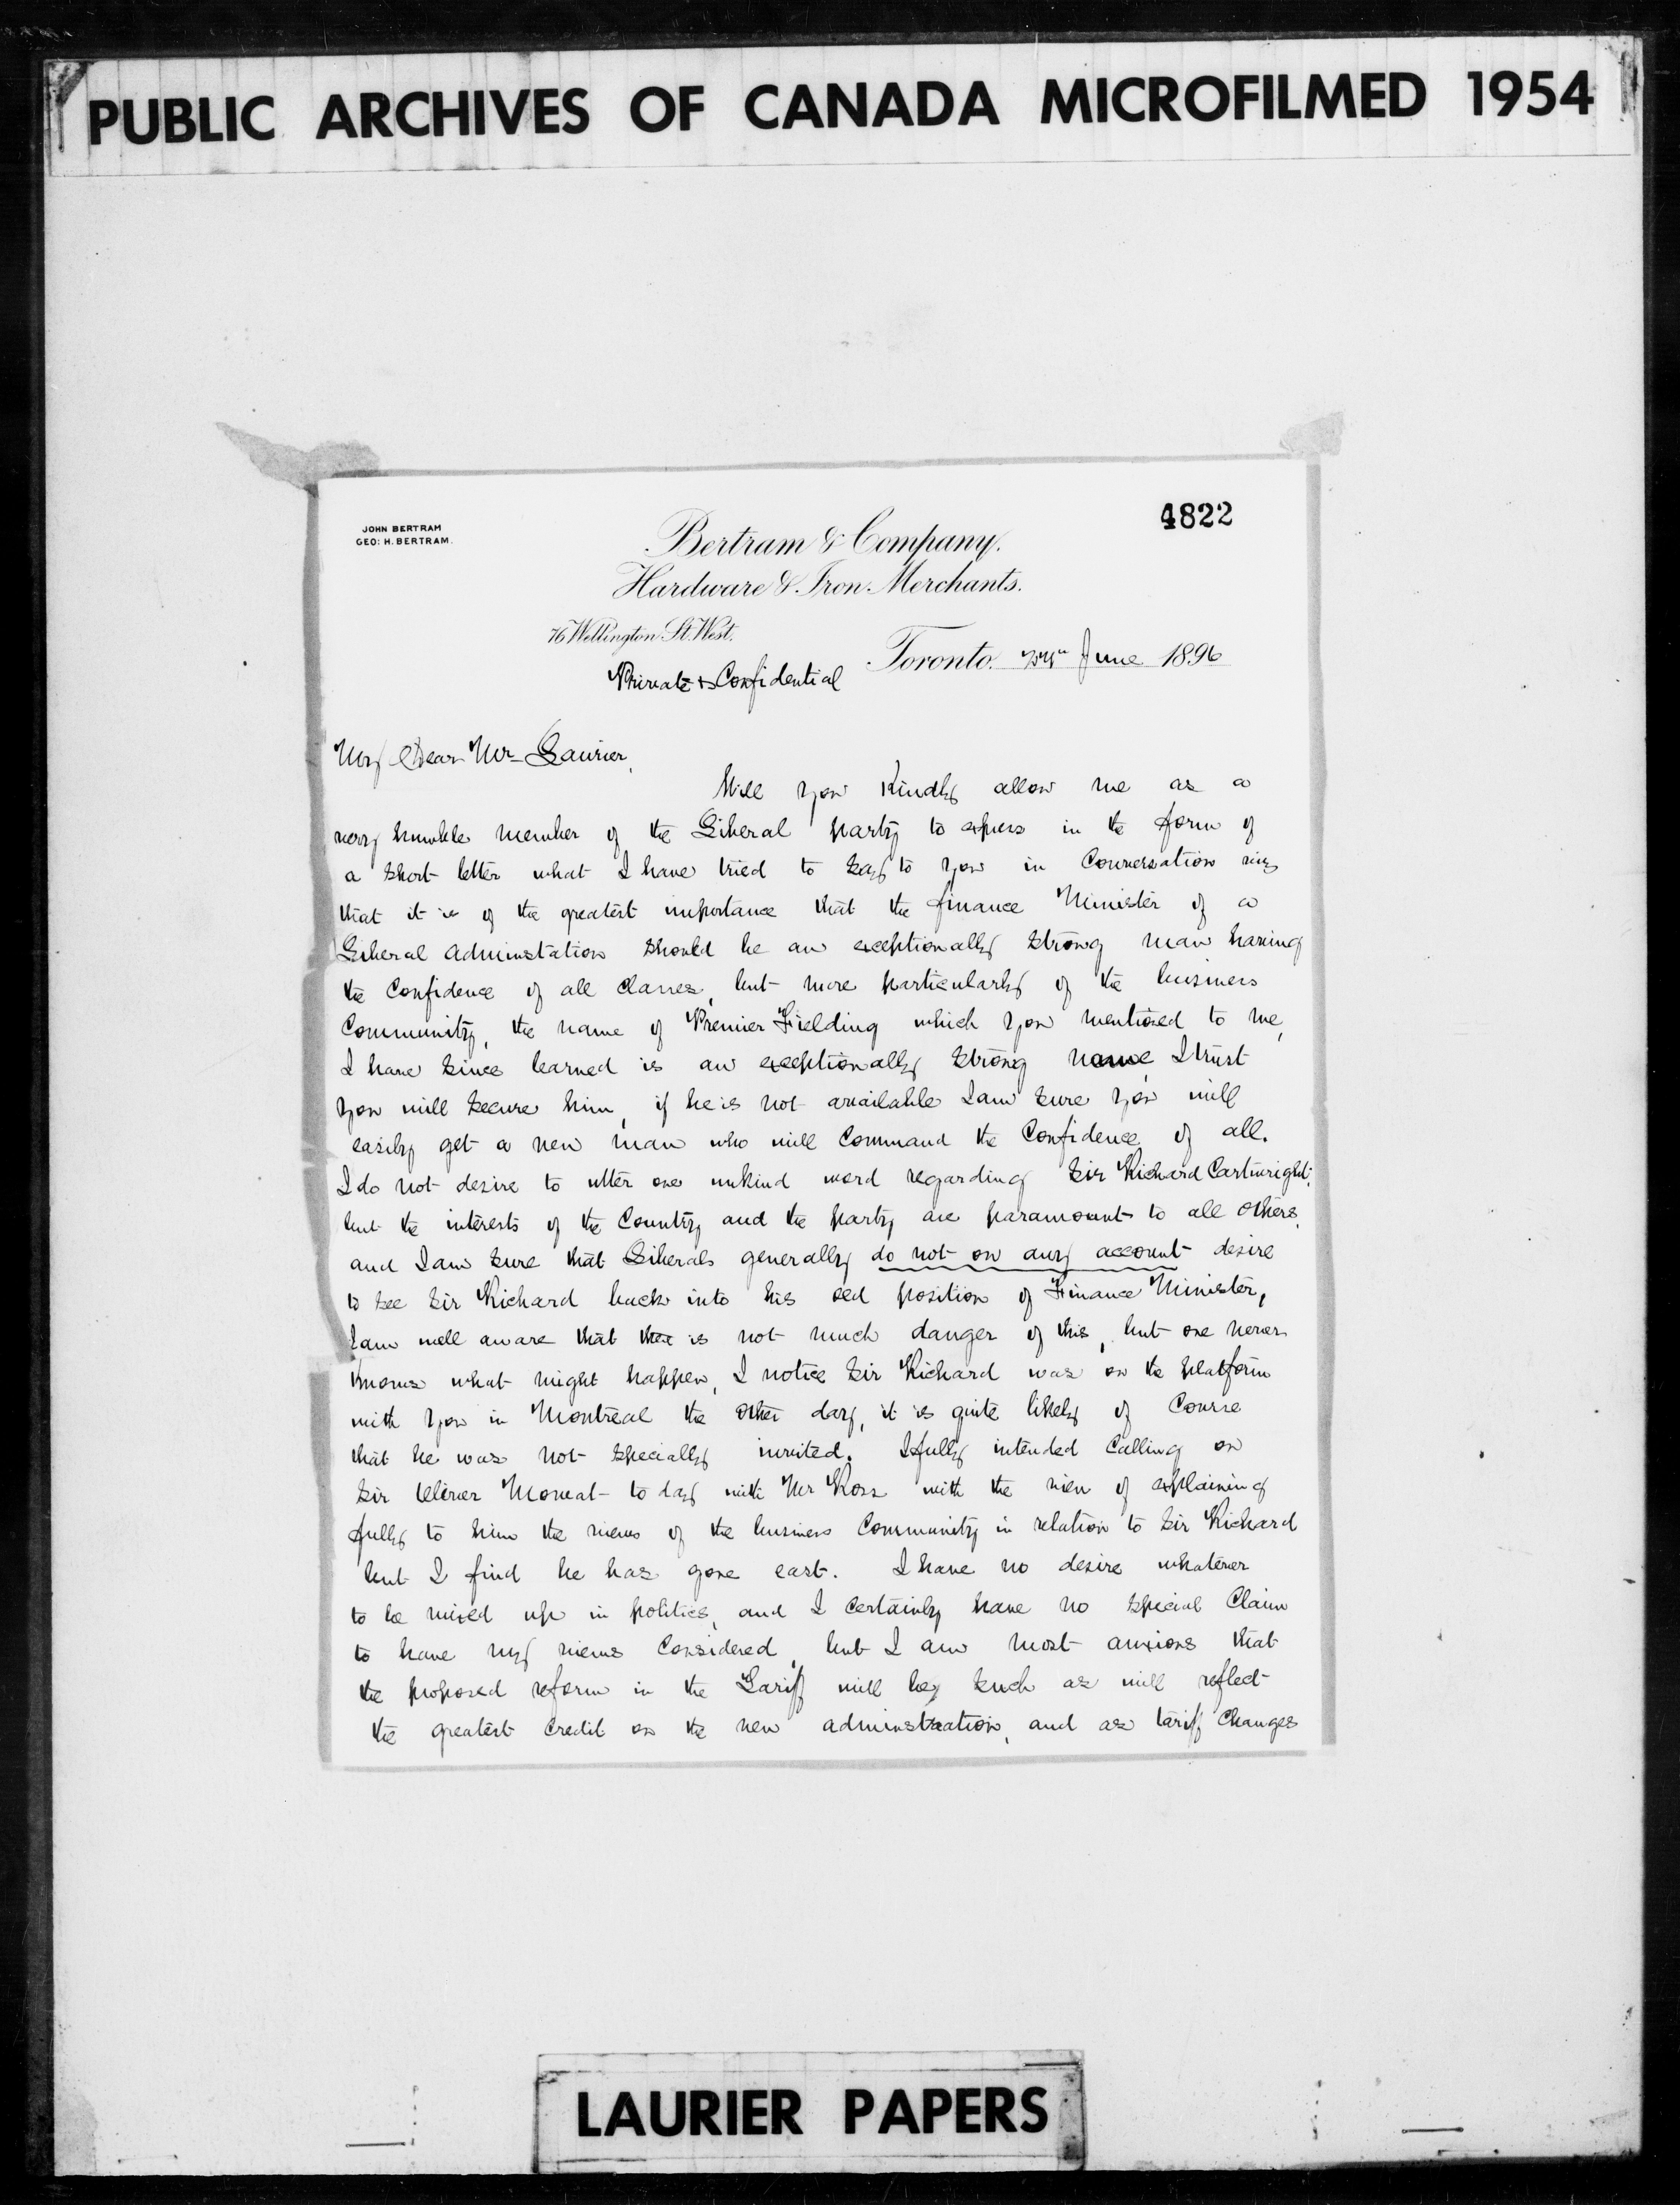 PUBLIC ARCHIVES OF CANADA MICROFILMED 1954
4822
JOHN BERTRAM
GEO: H. BERTRAM.
Bertram & Company.
Hardware & Iron Merchants.
76 Wellington St. West.
Toronto. June 1896
Private & Confidential
My Dear Mr Laurier,
Will you Kindly allow me as a
very humble member of the Liberal party to express in the form of
a short letter what I have tried to say to you in Conversation viz
that it is of the greatest importance that the finance Minister of a
Liberal Adminstation should be an exceptionally strong man having
the Confidence of all Classes, but more particularly of the business
Community, the name of Premier Fielding which you mentioned to me,
I have since learned is an exceptionally strong name I trust
you will secure him, if he is not available I am sure you will
easily get a new man who will Command the Confidence of all.
I do not desire to utter one unkind word regarding Sir Richard Cartwright,
but the interests of the Country and the party are paramount to all others,
and I am sure that Liberals generally do not on any account desire
to see Sir Richard back into his old position of Finance Minister,
I am well aware that there is not much danger of this, but one never
Knows what might happen, I notice Sir Richard was on the platform
with you in Montreal the other day, it is quite likely of Course
that he was not specially invited. I fully intended Calling on
Sir Oliver Mowat to day with Mr Ross with the view of explaining
fully to him the views of the business Community in relation to Sir Richard
but I find he has gone east. I have no desire whatever
to be mixed up in politics, and I Certainly have no special Claim
to have my views Considered, but I am most anxious that
the proposed reform in the Tariff will be such as will reflect
the greatest Credit on the new adminstration, and as tariff Changes
LAURIER PAPERS